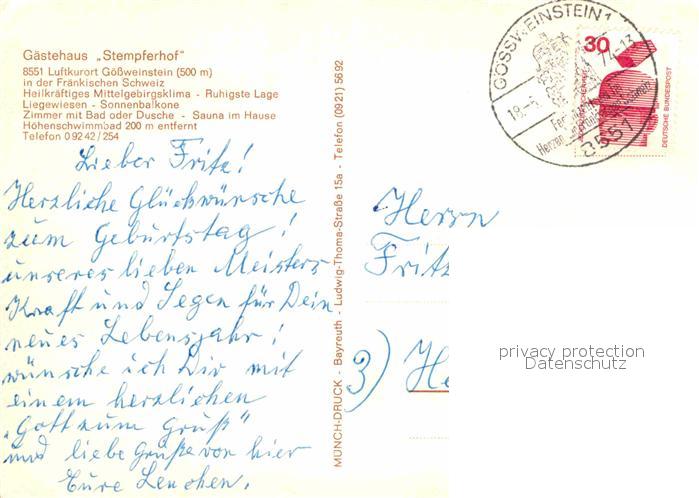 Gästehaus „Stempferhof"
8551 Luftkurort Gößweinstein (500 m)
in der Fränkischen Schweiz
Heilkräftiges Mittelgebirgsklima - Ruhigste Lage
Liegewiesen - Sonnenbalkone
Zimmer mit Bad oder Dusche - Sauna im Hause
Höhenschwimmbad 200 m entfernt
Telefon 0 92 42 / 254
Lieber Fritz!
Herzliche Glückwünsche
zum Geburtstag!
unseres lieben Meisters
Kraft und Segen für Dein
neues Lebensjahr!
wünsche ich Dir mit
einem herzlichen
„Gott zum Gruß"
und liebe Grüße von hier
Eure Lenchen.
MÜNCH-DRUCK - Bayreuth - Ludwig-Thoma-Straße 15a - Telefon (09 21) 56 92
GÖSSWEINSTEIN 1
18.-5.
74-13
8551
30
DEUTSCHE BUNDESPOST
Herrn
Fritz
3) He
privacy protection
Datenschutz